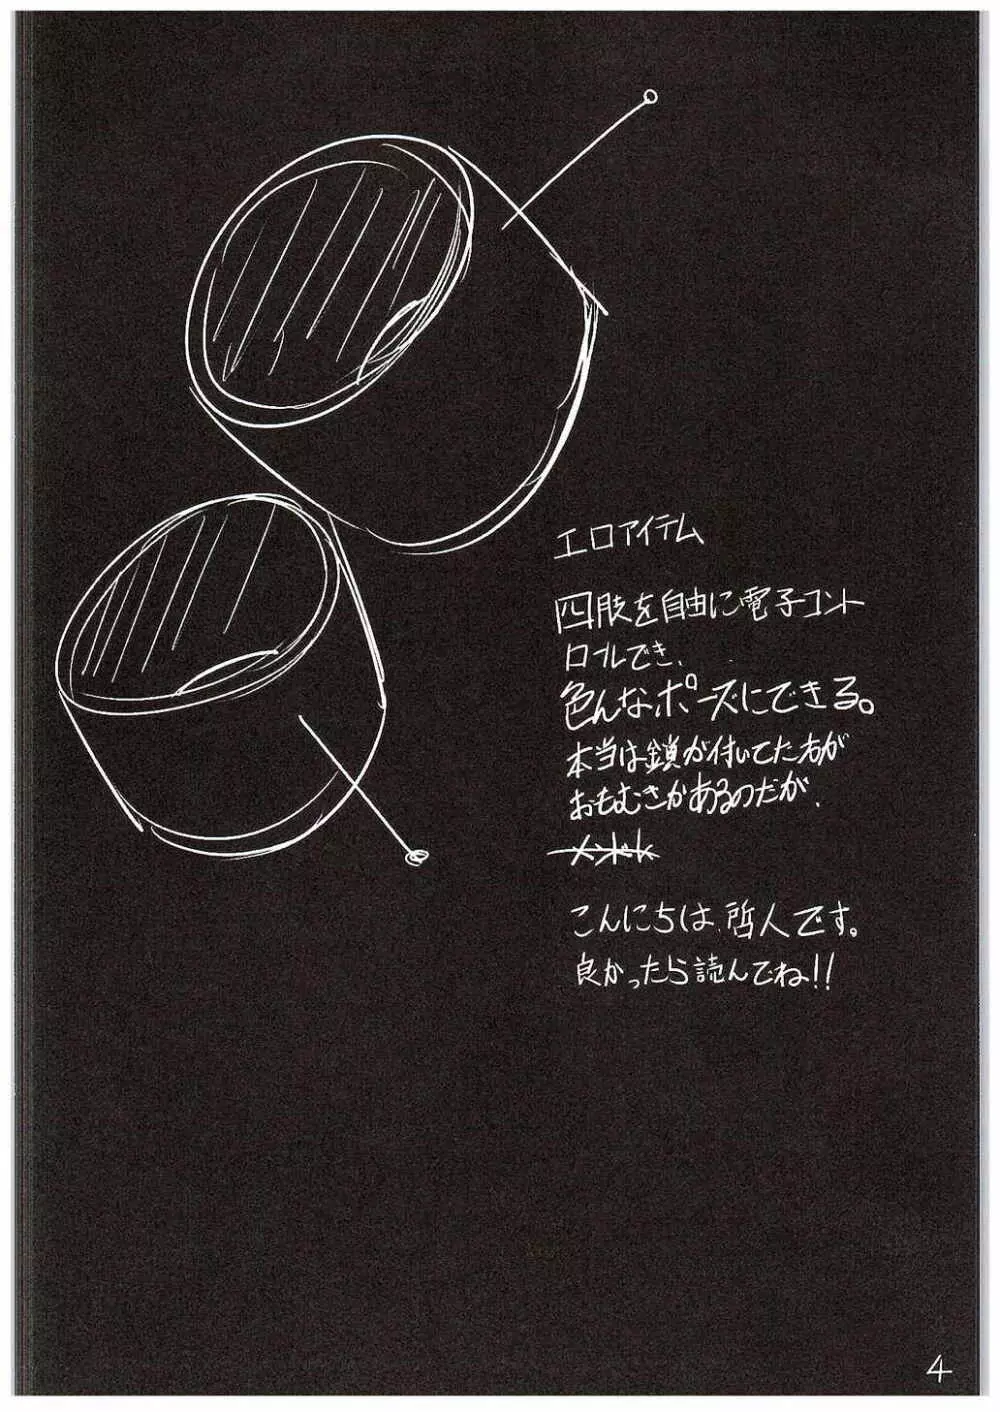 エロアイテム
四肢を自由に電子コント
ロールでき、
色んなポーズにできる。
本当は鎖が付いてた方が
おもむきがあるのだが、
メンドい
こんにちは、哲人です。
良かったら読んでね!!
4